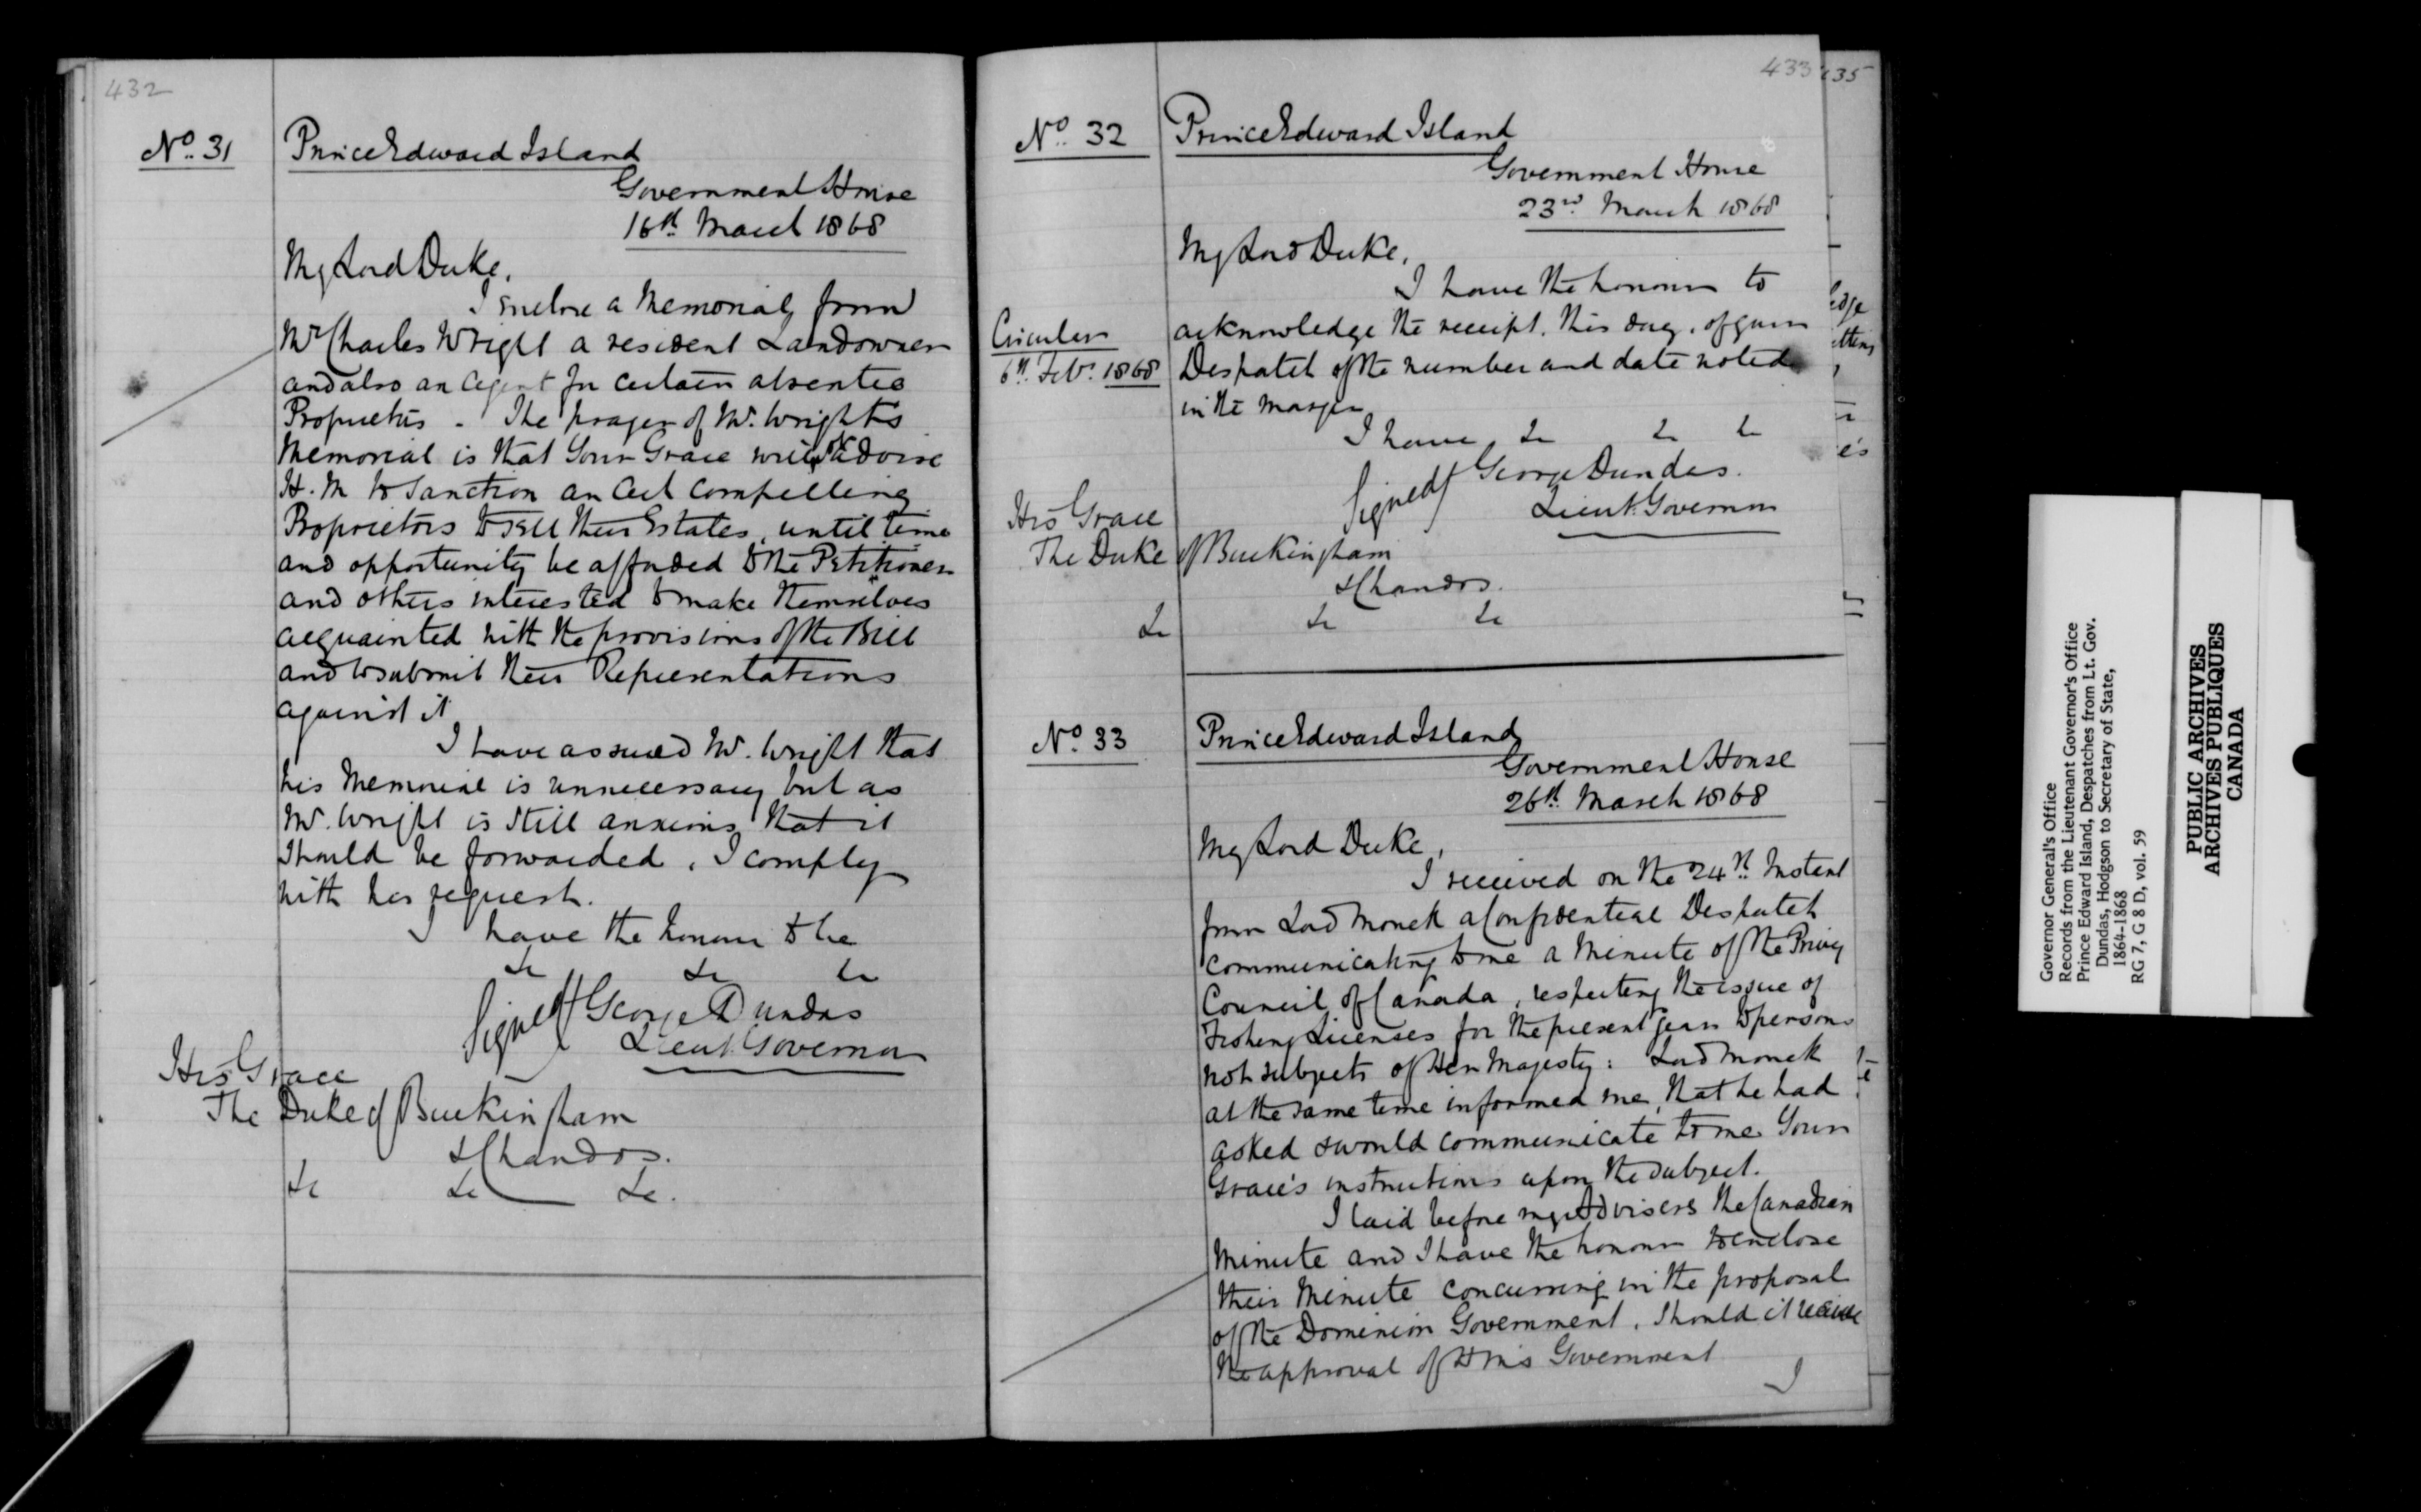 432
No. 31
Prince Edward Island
Government House
16th March 1868
My Lord Duke,
I enclose a Memorial from
Mr Charles Wright a resident Landowner
and also an Agent for certain absentee
Proprietors - The prayer of Mr. Wright's
Memorial is that Your Grace will advise
H. M to sanction an Act compelling
Proprietors to sell their Estates, until time
and opportunity be afforded to the Petitioner
and others interested to make themselves
acquainted with the provisions of the Bill
and to submit their Representations
against it
I have assured Mr. Wright that
his Memorial is unnecessary but as
Mr. Wright is still anxious that it
should be forwarded, I comply
with his request.
I have the honour to be
&c &c &c
Signed George Dundas
Lieut. Governor
His Grace
The Duke of Buckingham
& Chandos.
&c &c &c.
433
No. 32
Prince Edward Island
Government House
23rd March 1868
My Lord Duke,
I have the honour to
Circular
6th Feby. 1868
acknowledge the receipt, this day, of your
Despatch of the number and date noted
in the margin
I have &c &c &c
Signed George Dundas.
Lieut. Governor
His Grace
The Duke of Buckingham
& Chandos.
&c &c &c
No. 33
Prince Edward Island
Government House
26th March 1868
My Lord Duke,
I received on the 24th Instant
from Lord Monck a Confidential Despatch
communicating to me a Minute of the Privy
Council of Canada, respecting the issue of
Fishing Licenses for the present year to persons
not subjects of Her Majesty: Lord Monck
at the same time informed me, that he had
asked & would communicate to me Your
Grace's instructions upon the subject.
I laid before my Advisers the Canadian
Minute and I have the honour to enclose
their Minute concurring in the proposal
of the Dominion Government, should it receive
the approval of H M's Government
I
435
Governor General's Office
Records from the Lieutenant Governor's Office
Prince Edward Island, Despatches from Lt. Gov.
Dundas, Hodgson to Secretary of State,
1864-1868
RG 7, G 8 D, vol. 59
PUBLIC ARCHIVES
ARCHIVES PUBLIQUES
CANADA